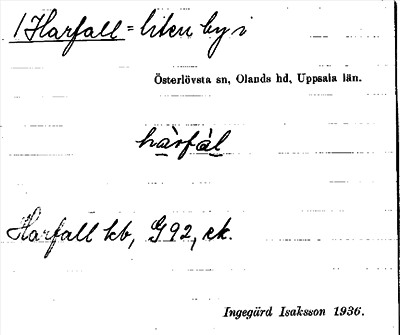 1 Harfall = liten by i
Österlövsta sn, Olands hd, Uppsala län.
hàrfàl
Harfall kb, G92, ek.
Ingegärd Isaksson 1936.